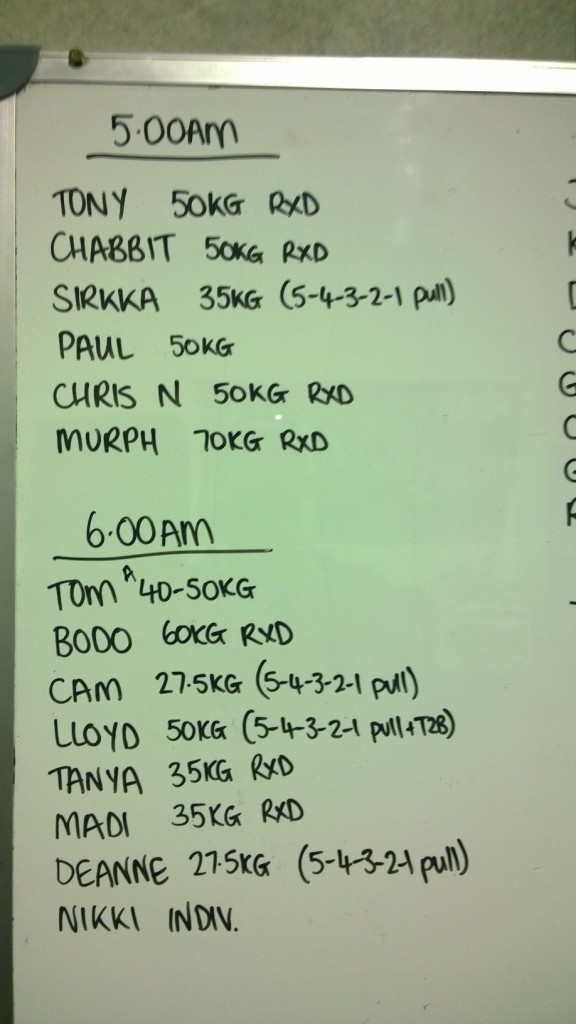 5.00AM
TONY 50KG RXD
CHABBIT 50KG RXD
SIRKKA 35KG (5-4-3-2-1 pull)
PAUL 50KG
CHRIS N 50KG RXD
MURPH 70KG RXD
6.00AM
TOM A 40-50KG
BODO 60KG RXD
CAM 27.5KG (5-4-3-2-1 pull)
LLOYD 50KG (5-4-3-2-1 pull+T2B)
TANYA 35KG RXD
MADI 35KG RXD
DEANNE 27.5KG (5-4-3-2-1 pull)
NIKKI INDIV.